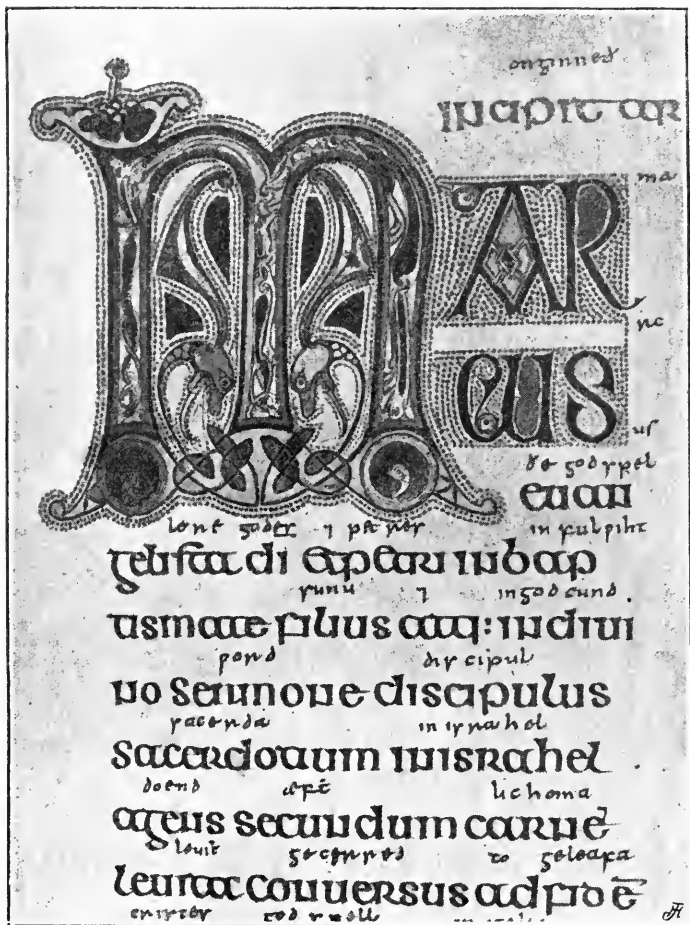 onginneð
incipit ar
MAR
ma
rc
CUS
us
ðe godspel
euan
godes 7 petres in fulpiht
gelista di et petri in bap
sunu 7 in godcund
tismate filius atq: in diui
pord discipul
no sermone discipulus
sacerda in israhel
sacerdotium in israhel
doend æft lichoma
agens secundum carnē
leuit gecerred to geleafa
leuita conuersus ad fidē
cristes godspell